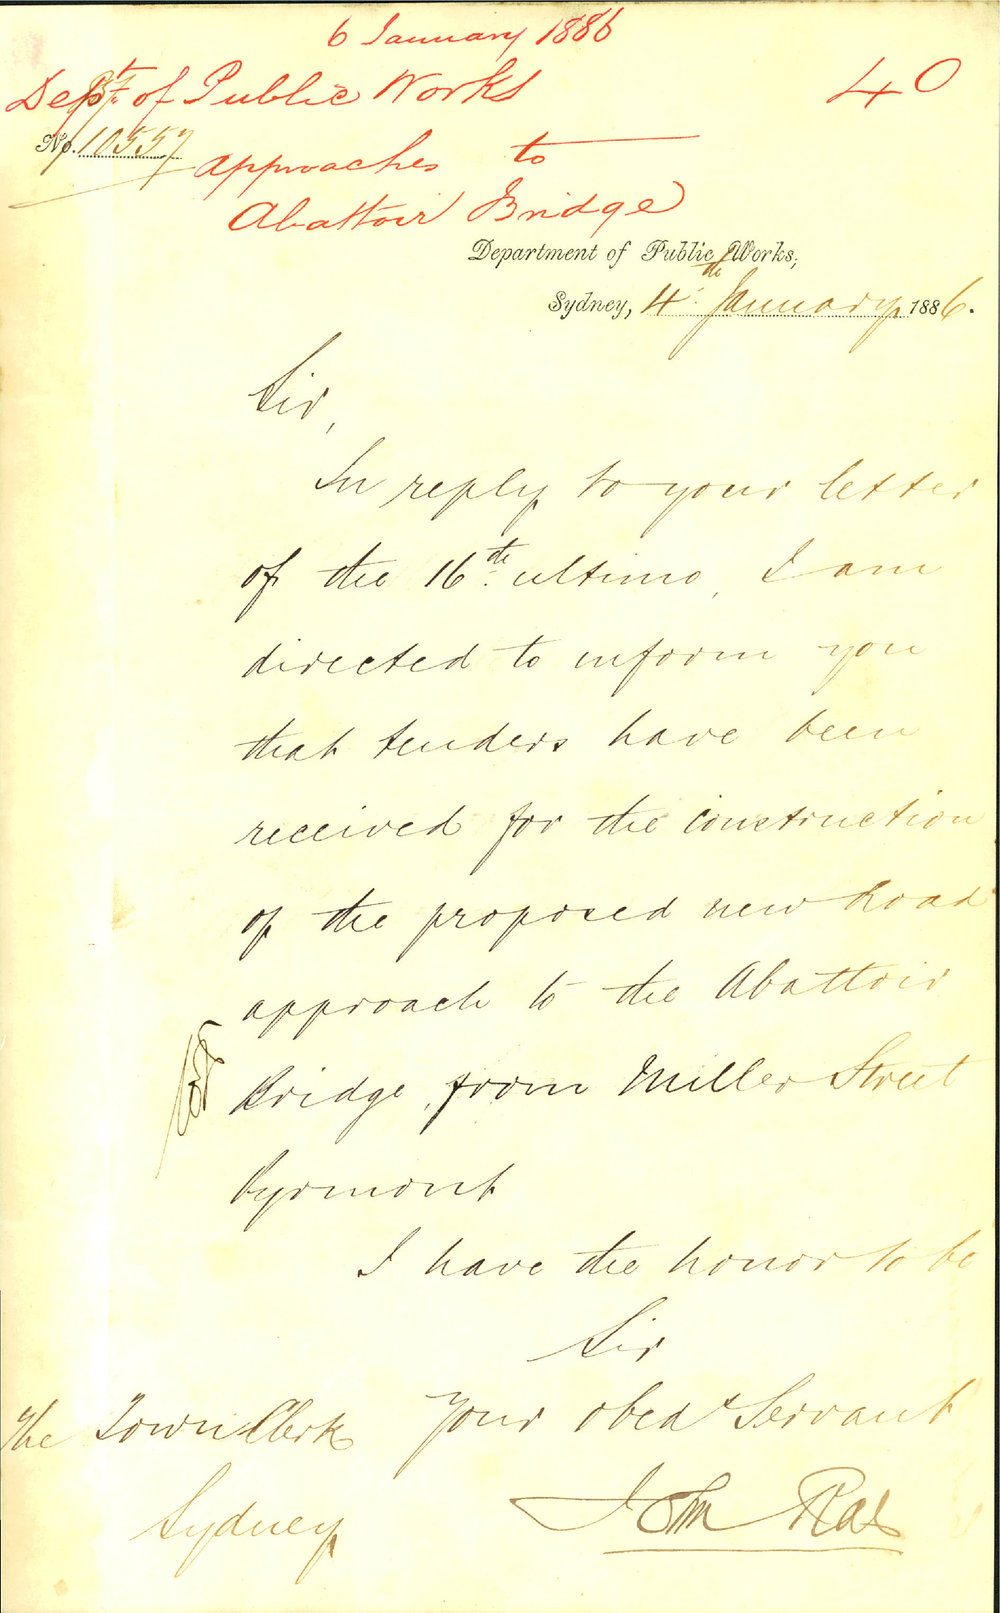 6 January 1886
Dept of Public Works 40
No. 10557
Approaches to
Abattoir Bridge
Department of Public Works,
Sydney, 4th January 1886.
Sir,
In reply to your letter
of the 16th ultimo, I am
directed to inform you
that tenders have been
received for the construction
of the proposed new Road
approach to the Abattoir
Bridge, from Miller Street
Pyrmont
I have the honor to be
Sir
Your obedt Servant
John Rae
The Town Clerk
Sydney